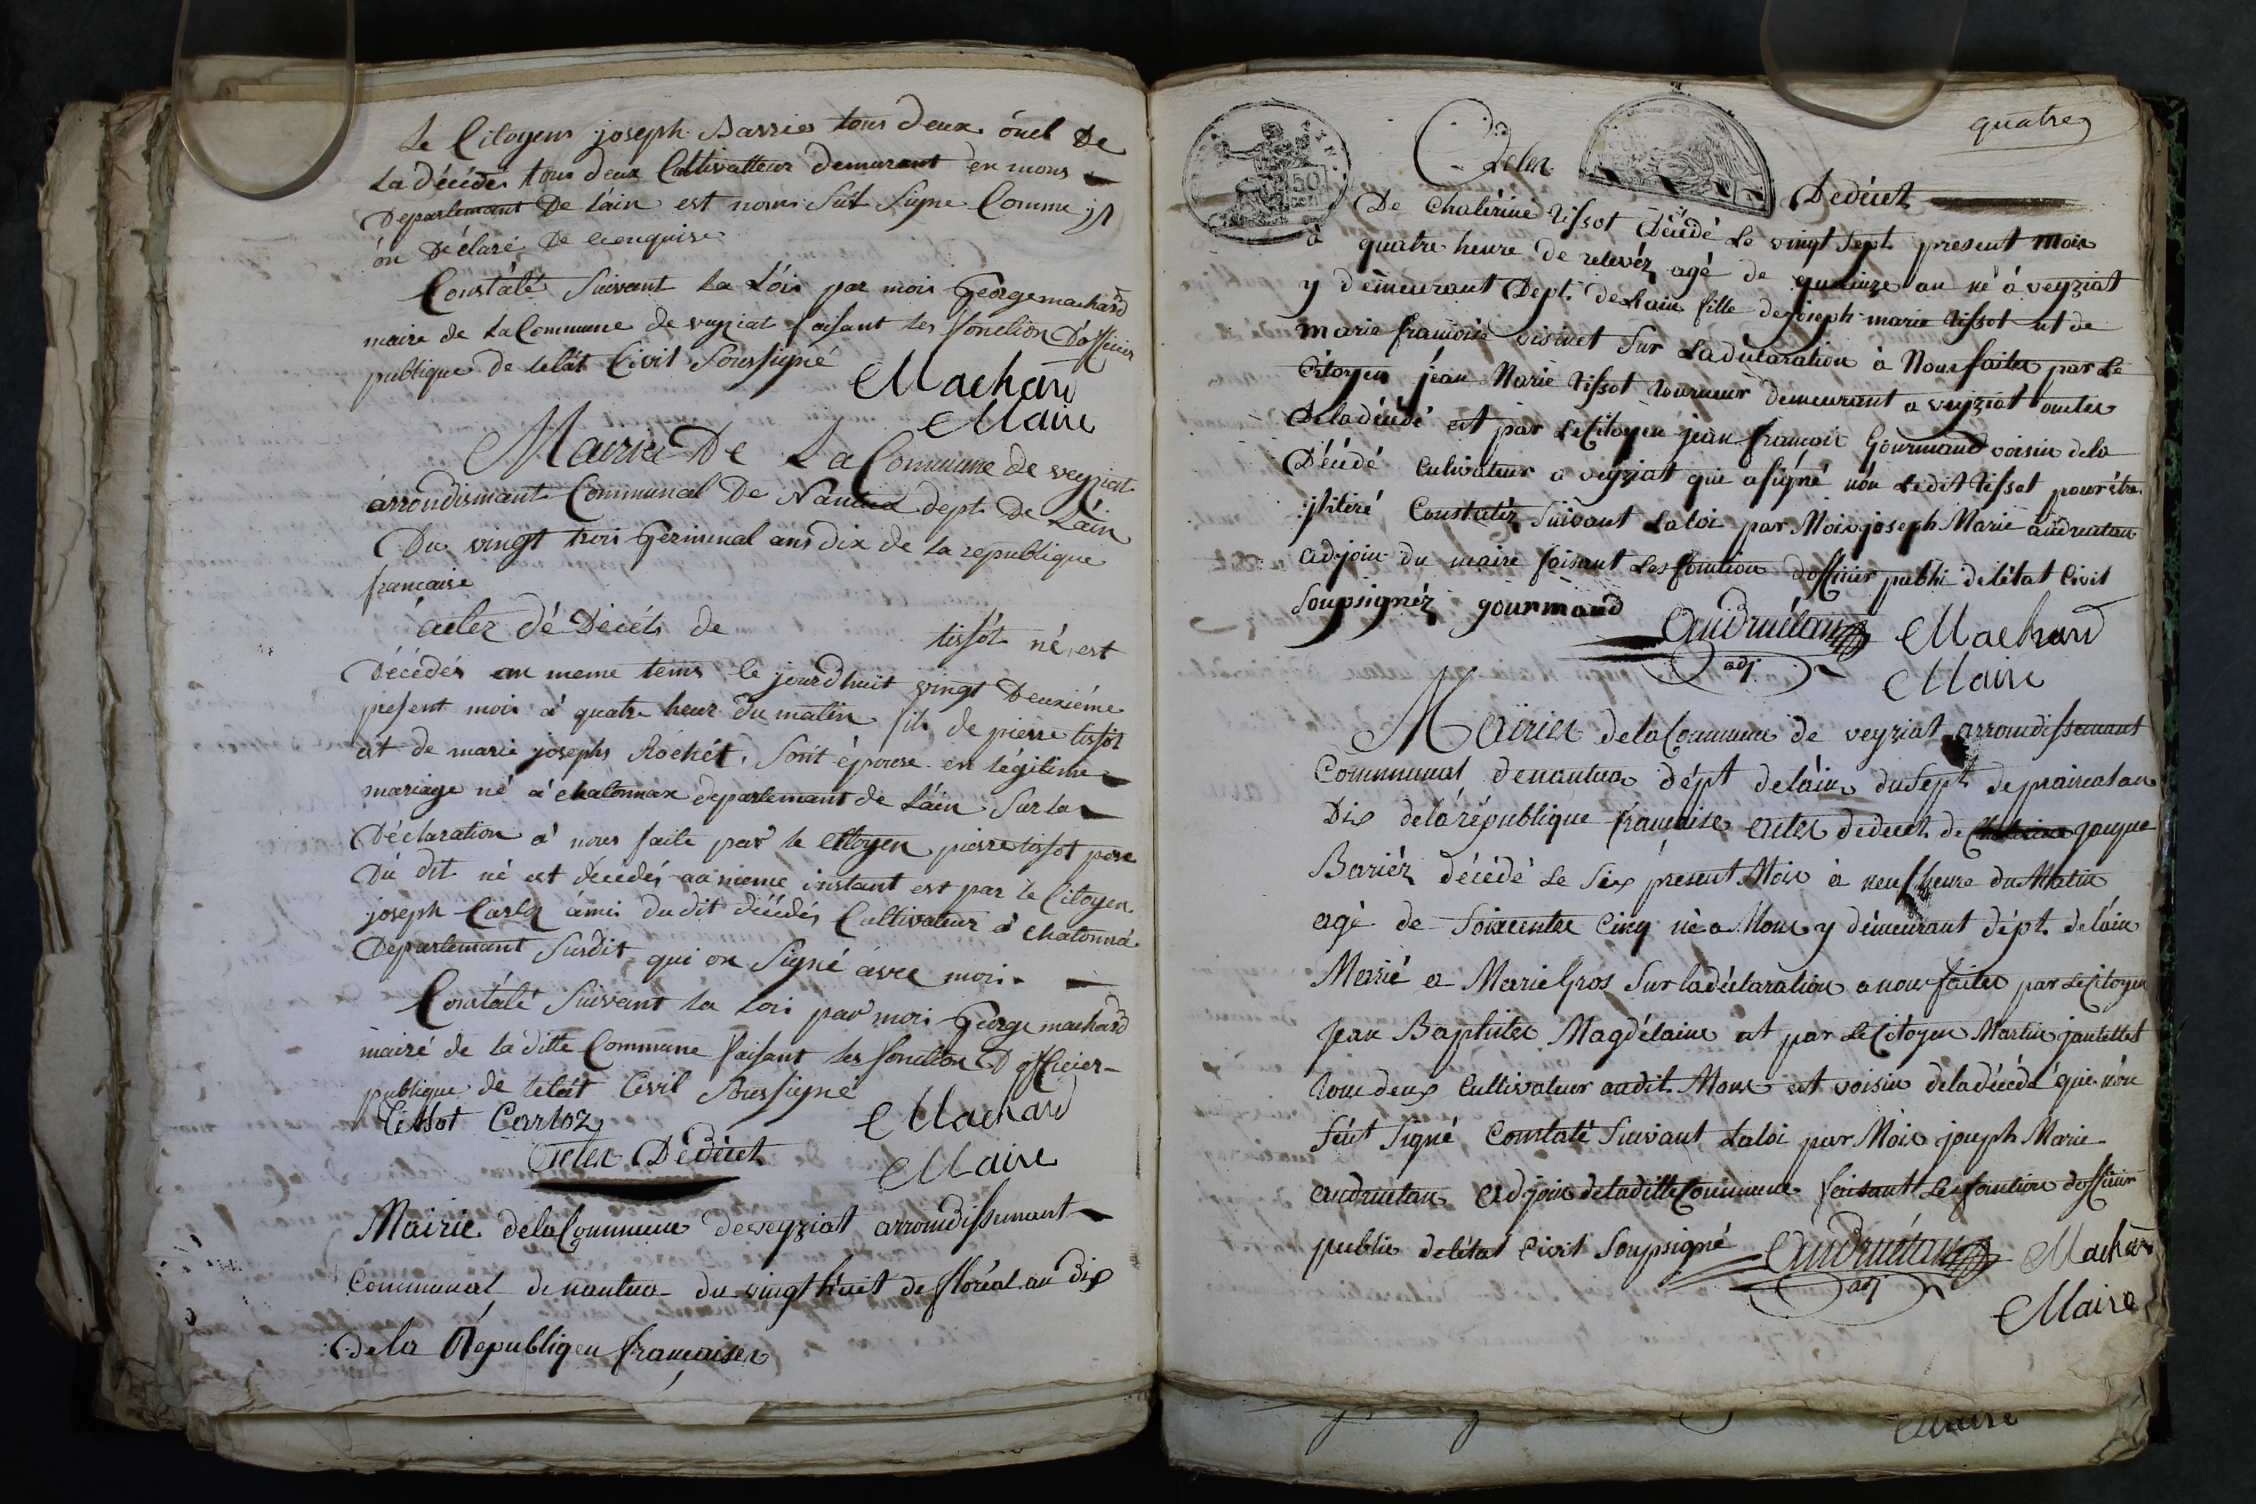 Le Citoyens joseph Barrier tous deux oncl De
La décédé tous deux Cultivatteur demurant en mons
Departemant De Láin est nonts Sut Signe Comme js
on Déclaré De ce enquise
Constáté Suivant La Lóis par mois George machard
maire de La Commune de veyziat faisant les fonction D'officier
publique de letát Civil Soussigné
Machard
Maire
Mairie De La Commune de veyziat
arrondismant Communal De Nantua dept. De Láin
Du vingt trois Germinal ans dix de La republique
francaise
áctez dé Décéts de tissót né est
Décédés en meme tems le jourdhuit vingt Deuxiéme
present mois á quatre heur du matin fils de pierre tissot
et de marie josephs Róchét. Sont épouse en légitime
mariage né á chatonnax departemant de Láin Sur la
Déclaration á nous faite par le Citoyen pierre tissot pere
Du dit né et décédés au meme instant est par le Citoyen
joseph Carloz ámis dudit décédés Cultivateur á Chatonná
Departemant Susdit qui on Signé avec moi.
Constáté Suivant la Loi par mois George machard
mairé de la ditte Commune faisant les fonction D officier
publique de letát Civil Soussigné
tissot Carloz Machard
Actez Dédécet Maire
Mairie dela Commune deveyziat arrondissemant
Communal de nantua du vingt huit de floréal an dix
dela Républiqeu françaisez
quatre
Actez Dedécet
De Chatérine tissot Décédé Le vingt Sept present mois
á quatre heure de relevéz agé de quinze an né á veyziat
y demeurant Dept. de Lain fille de joseph marie tissot et de
marie francoise Sur La déclaration á Nous faites par Le
Citoyen jéan Marie tissot tourneur demeurant a veyziat oncles
De la décédé est par Le Citoyen jean francois Gourmand voisin dela
Décédé Cultivateur a veyziat qui a signé nón Ledit tissot pour étre
jlitéré Constatéz Suivant La loi par Mois joseph Marie andruétan
adjoin du maire faisant Les fonction dofficier publi de létat Civil
Soupsignéz gourmand Andruétan Machard
adj. Maire
Mairiez dela Commune de veyziat arrondissemant
Communal denantua dépt deláin du Sept de prairéal an
Dix dela république française actez dedecet de jaque
Bariéz décédé Le Six présent Mois á neuf heure du Matin
agé de Soixcentes Cinq né a Mons y démeurant dépt. deláin
Marié a Marie Gros Sur la déclaration a nous faites par Le Citoyen
Jean Baptistes Magdélaine et par Le Citoyen Martin jantettet
tous deux Cultivateur audit Mons est voisin dela décédé qui nón
Séut Signé Constaté Suivant La loi par Mois joseph Marie
andruétan adjoin deladitte Commune faisant Les fonction dofficier
public delétat Civil Soupsigné Andruétan Machard
adj Maire
Maire